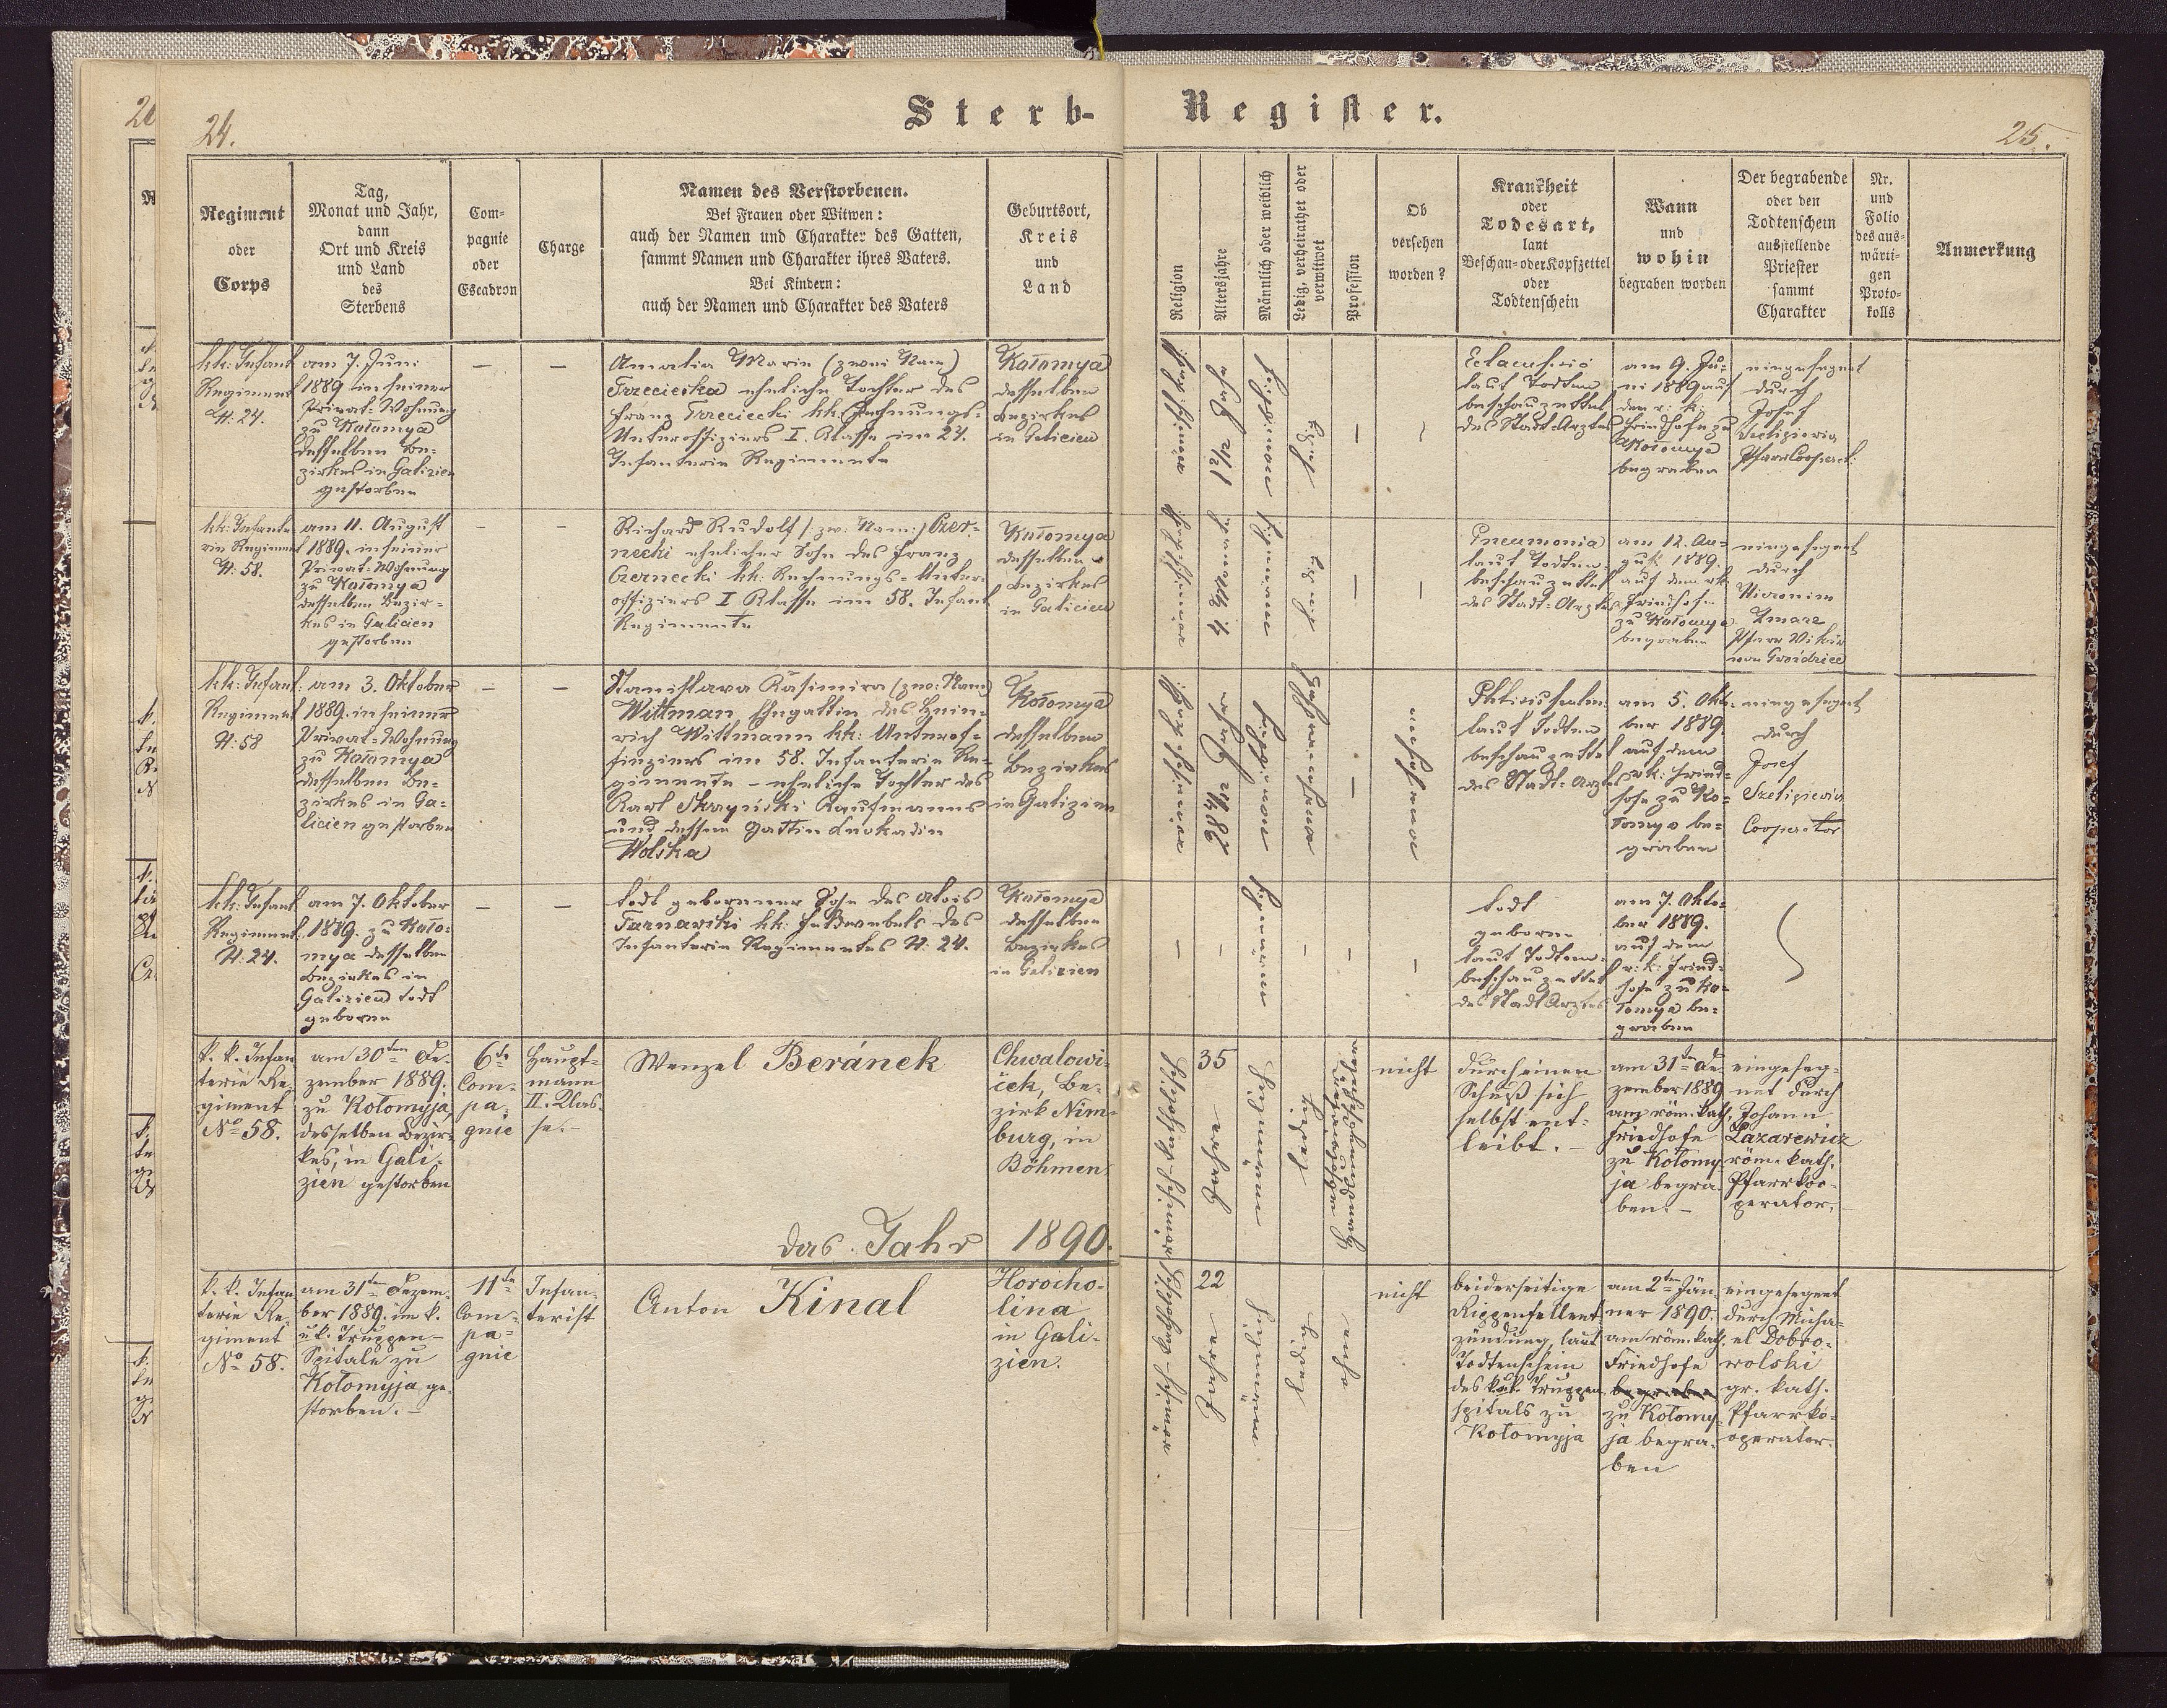 24.
Sterb-
Register.
25.
Regiment
oder
Corps
Tag,
Monat und Jahr,
dann
Ort und Kreis
und Land
des
Sterbens
Com-
pagnie
oder
Escadron
Charge
Namen des Verstorbenen.
Bei Frauen oder Witwen:
auch der Namen und Charakter des Gatten,
sammt Namen und Charakter ihres Vaters.
Bei Kindern:
auch der Namen und Charakter des Vaters
Geburtsort,
Kreis
und
Land
Religion
Altersjahre
Männlich oder weiblich
Ledig, verheirathet oder
verwitwet
Profession
Ob
versehen
worden?
Krankheit
oder
Todesart,
laut
Beschau- oder Kopfzettel
oder
Todtenschein
Wann
und
wohin
begraben worden
Der begrabende
oder den
Todtenschein
ausstellende
Priester
sammt
Charakter
Nr.
und
Folio
des aus-
wärti-
gen
Proto-
kolls
Anmerkung
kk: Infant
Regiment
N: 24.
am 7. Juni
1889 in seiner
Privat-Wohnung
zu Kołomya
desselben Be-
zirkes in Galizien
gestorben
—
—
Amalia Maria (zwei Nam)
Trzeciecka eheliche Tochter des
Franz Trzeciecki kk. Rechnungs-
Unteroffiziers I. Klasse im 24.
Infanterie Regimente
Kołomya
desselben
Bezirkes
in Galicien
röm. kath.
2 1/2 Jahr
weiblich
ledig
—
laut Todten
beschauzettel
des Stadt-Arztes
am 9. Ju-
ni 1889 auf
den r: k:
Friedhofe zu
Kołomya
begraben
eingesegnet
durch
Josef
Pfarr Cooperat:
kk: Infante
rie Regiment
N: 58.
am 11. August
1889. in seiner
Privat-Wohnung
zu Kołomya
desselben Bezir-
kes in Galicien
gestorben
—
—
Richard Rudolf /: zw: Nam:/ Czer-
necki ehelicher Sohn des Franz
Czernecki kk: Rechnungs-Unter-
offiziers I Klasse im 58. Infant
Regimente
Kołomya
desselben
Bezirkes
in Galicien
männlich
ledig
—
—
Pneumonia
laut Todten-
beschauzettel
des Stadt-Arztes
am 12. Au-
gust 1889.
auf dem rk.
Friedhofe
zu Kołomya
begraben
eingesegnet
durch
Hieronim
Pfarr Vikär
kk: Infant:
Regiment
N: 58
am 3. Oktober
1889. in seiner
Privat-Wohnung
zu Kołomya
desselben Be-
zirkes in Ga-
licien gestorben
—
—
Stanislava Kasimira (zw: Nam)
Wittman, Ehegattin des Hein-
rich Wittmann kk: Unterof-
fiziers im 58. Infanterie Re-
gimente – eheliche Tochter des
Karl Kaufmanns
und dessen Gattin Leokadia
Wolska
Kołomya
desselben
Bezirkes
in Galizien
weiblich
—
versehen
laut Todten
beschauzettel
des Stadt-Arztes
am 5. Okto-
ber 1889
auf dem
rk: Fried-
hofe zu Ko-
łomya be-
graben
eingesegnet
durch
Josef
Cooperator
kk: Infant
Regiment
N: 24.
am 7. Oktober
1889. zu Koło-
mya desselben
Bezirkes in
Galizien todt
geboren
—
—
todt geborener Sohn des Alois
Tarnawski kk: Feldwebels des
Infanterie Regimentes N: 24.
Kołomya
desselben
Bezirkes
in Galizien
—
—
männlich
—
—
—
todt
geboren
laut Todten-
beschauzettel
des Stadt Arztes
am 7. Okto-
ber 1889.
auf dem
r: k: Fried-
hofe zu Ko-
łomya be-
graben
k. k. Infan
terie Re-
giment
No 58.
am 30ten De-
zember 1889.
zu Kołomyja,
desselben Bezir-
kes, in Gali-
zien gestorben
6te
Com-
pa-
gnie
Haupt-
mann
II. Klas-
se. –
Wenzel Beránek
Chwalowi-
ček, Be-
zirk Nim-
burg, in
Böhmen
römisch-katholisch
35
Jahre
männlich
ledig
nicht
durch einen
Schuß sich
selbst ent-
leibt. –
am 31ten De-
zember 1889
am röm. kath.
Friedhofe
zu Kołomy-
ja begra-
ben. –
eingeseg-
net durch
Johann
Lazarewicz
röm. kath.
Pfarrkoo-
perator.
das Jahr 1890.
k. k. Infan
terie Re-
giment
No 58.
am 31ten Dezem-
ber 1889. im k.
u k. Truppen-
Spitale zu
Kołomyja ge-
storben. –
11te
Com-
pa-
gnie
Infan-
terist
Anton Kinal
Horocho-
lina
in Gali-
zien.
römisch-katholisch
22
Jahre
männlich
ledig
ohne
nicht
beiderseitige
Rippenfellent-
zündung, laut
Todtenschein
des k.u.k. Truppen
spitals zu
Kołomyja
am 2ten Jän-
ner 1890.
am röm. kath.
Friedhofe
begraben
zu Kołomy-
ja begra-
ben
eingesegnet
durch Micha-
el Dobro-
wolski
gr. kath.
Pfarrko-
operator.